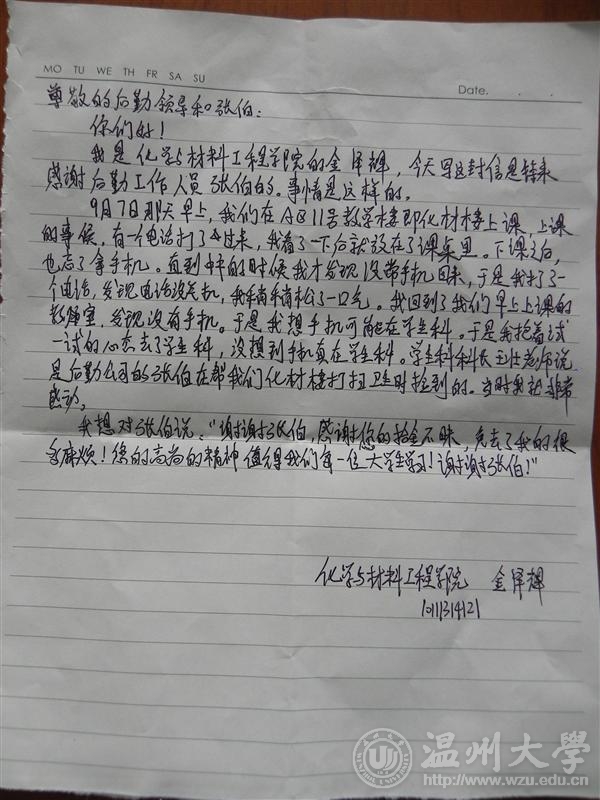 MO TU WE TH FR SA SU
Date.
尊敬的后勤领导和张伯：
你们好！
我是化学与材料工程学院的金泽辉，今天写这封信是特来
感谢后勤工作人员张伯的。事情是这样的。
9月7日那天早上，我们在A区11号教学楼即化材楼上课，上课
的事候，有一个电话打了过来，我看了一下后就放在了课桌里。下课之后，
也忘了拿手机。直到中午的时候我才发现没带手机回来，于是我打了一
个电话，发现电话没关机，我稍稍松了一口气。我回到了我们早上上课的
教室，发现没有手机。于是我想手机可能在学生科。于是我抱着试
一试的心态去了学生科，没想到手机真在学生科。学生科科长王仕老师说
是后勤公司的张伯在帮我们化材楼打扫卫生时捡到的。当时我就非常
感动。
我想对张伯说：“谢谢张伯，感谢您的拾金不昧，免去了我的很
多麻烦！您的高尚的精神值得我们每一位大学生学习！谢谢张伯！”
化学与材料工程学院 金泽辉
1011314121
温州大学
WENZHOU UNIVERSITY
http://www.wzu.edu.cn